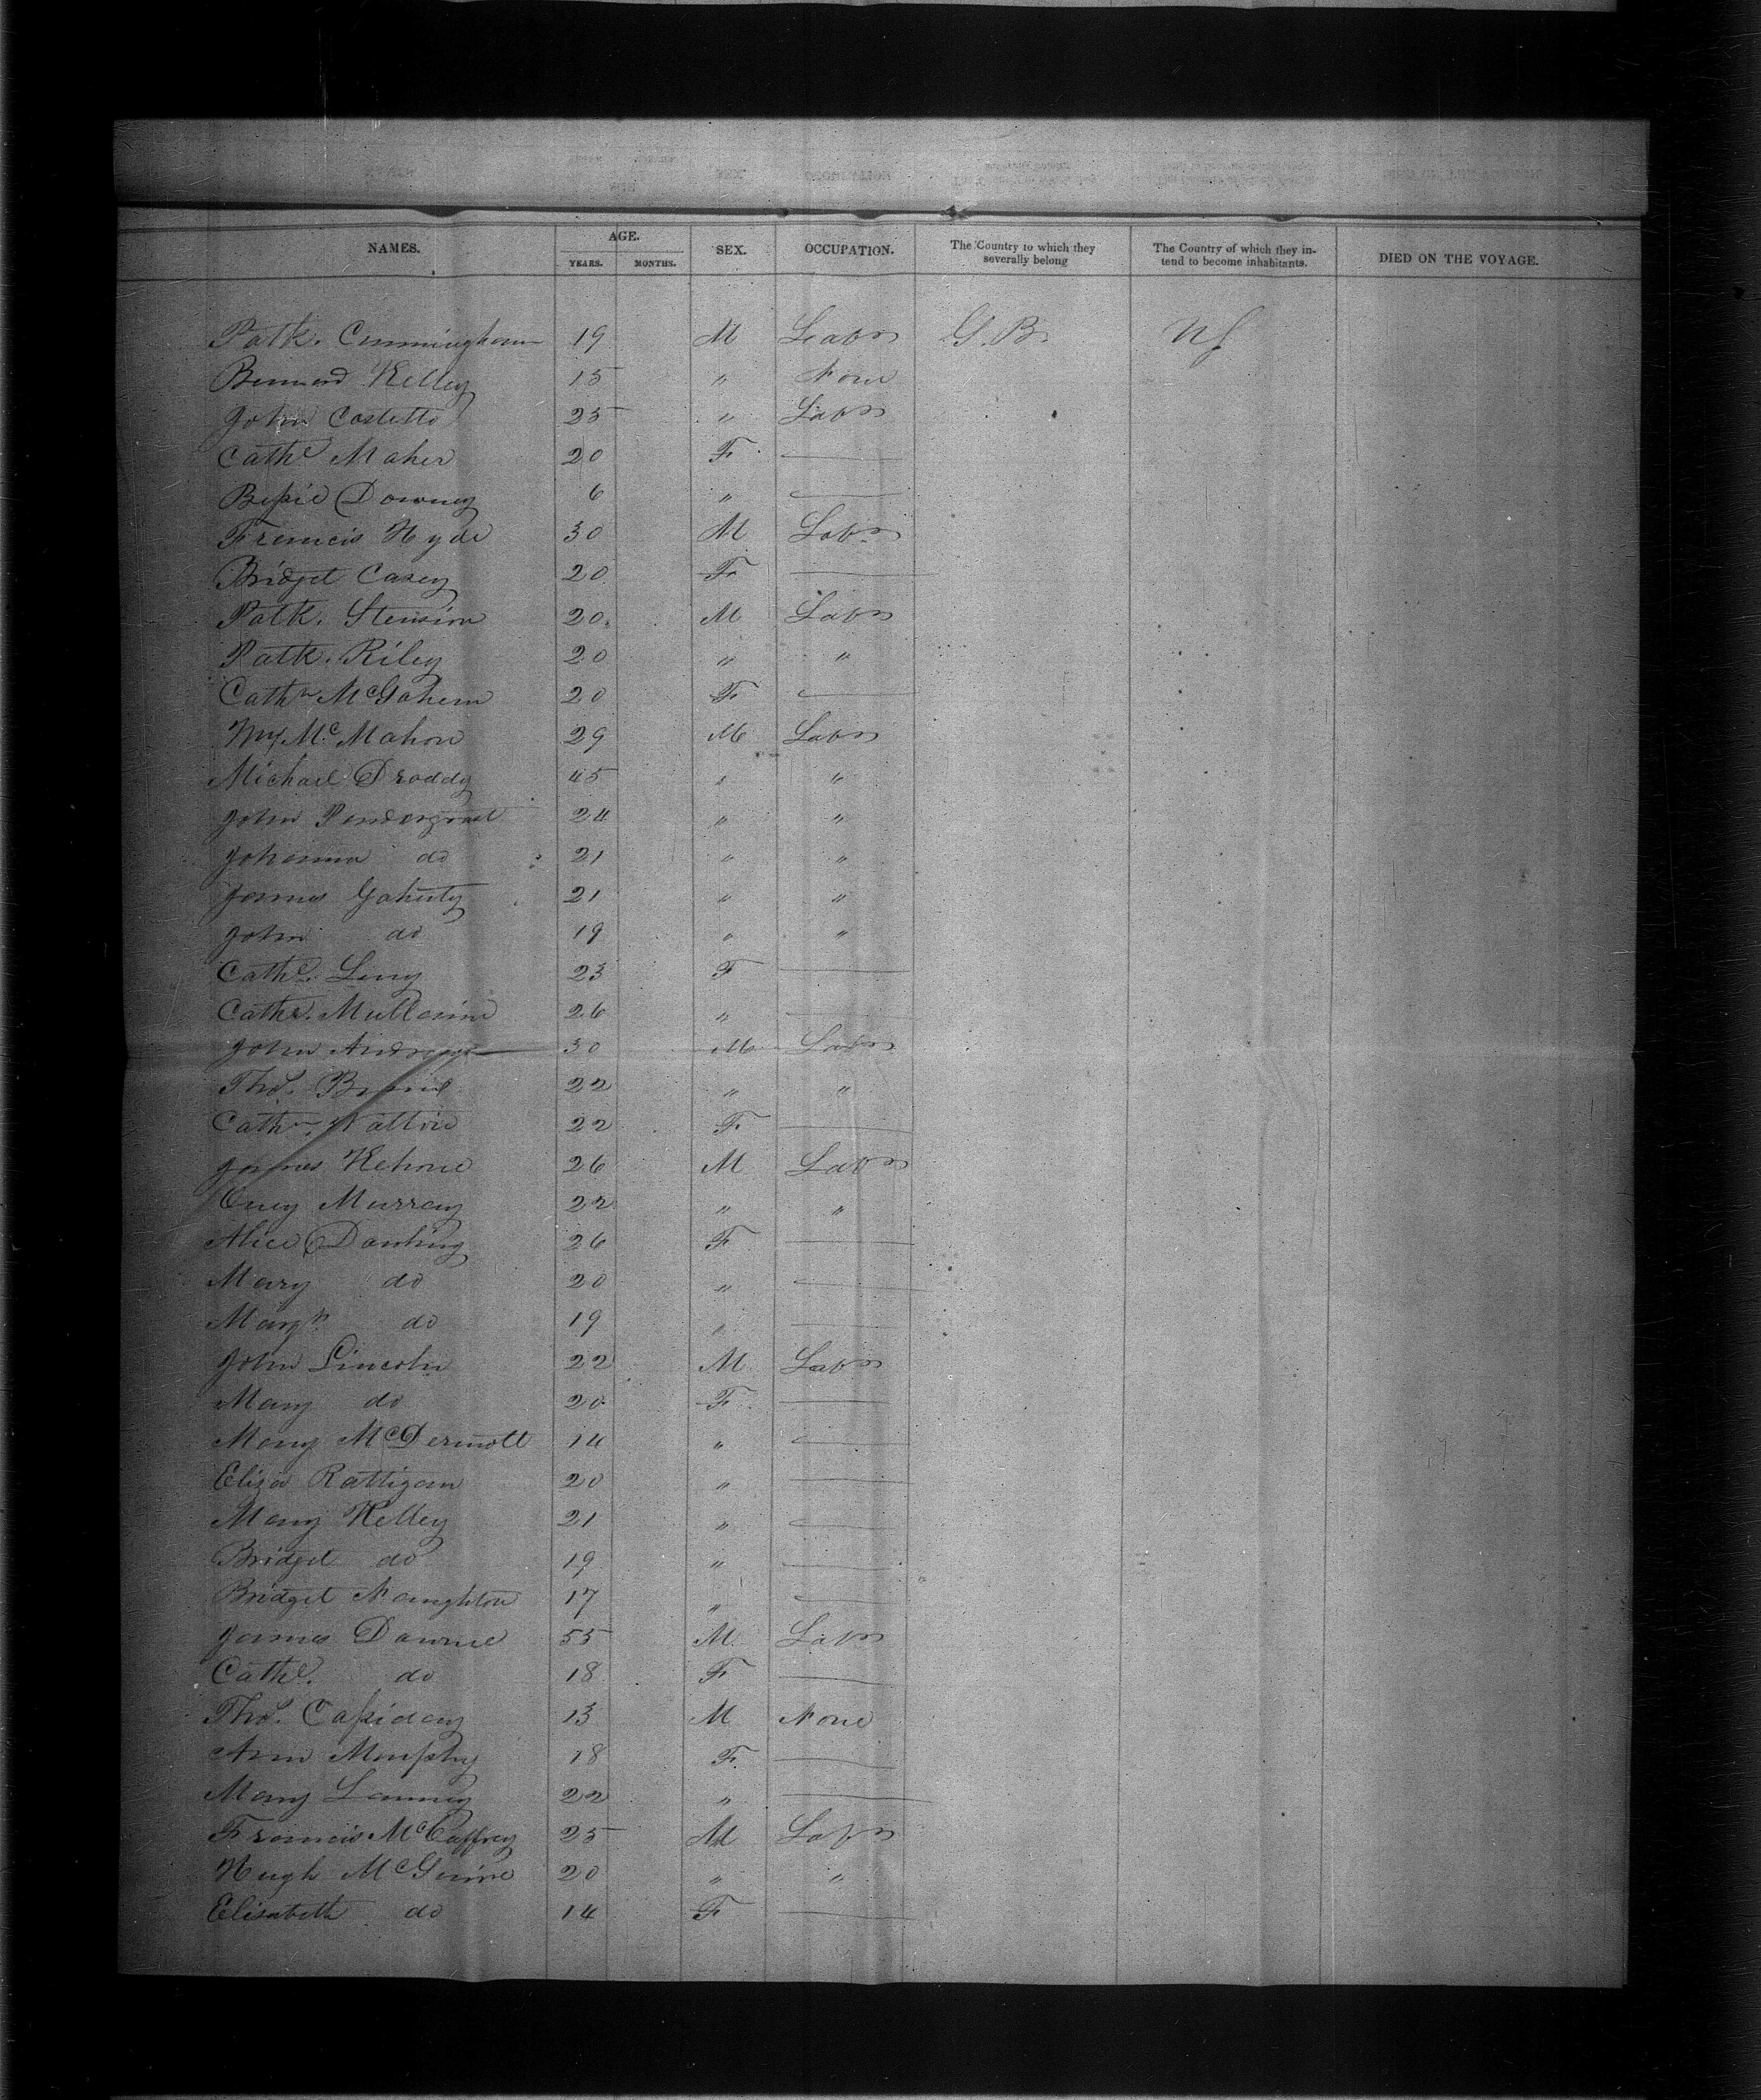 NAMES. AGE. SEX. OCCUPATION. The Country to which they severally belong The Country of which they intend to become inhabitants. DIED ON THE VOYAGE.
YEARS. MONTHS.
Patk. Cunningham 19 M Labr G.B. US
Bernard Kelley 15 " None
John Costello 25 " Labr
Cathe Maher 20 F —
Bessie Downey 6 " —
Francis Hyde 30 M Labr
Bridget Casey 20 F —
Patk. 20 M Labr
Patk. Riley 20 " "
Cathn McGahern 20 F —
Wm McMahon 29 M Labr
Michael Droddy 45 " "
John Pendergrast 24 " "
Johanna do 21 " "
James Gaherty 21 " "
John do 19 " "
Cathe. 23 F —
Cathe. Mullanin 26 " —
John 30 M Labr
Thos. 22 " "
Cathn. 22 F —
James Kehoe 26 M Labr
Murray 22 " "
Alice Dowling 26 F —
Mary do 20 " —
Margt do 19 " —
John Lincoln 22 M Labr
Mary do 20 F —
Mary McDermott 14 " —
Eliza Rattigan 20 " —
Mary Kelley 21 " —
Bridget do 19 " —
Bridget Naughton 17 " —
James Downie 55 M Labr
Cathe. do 18 F —
Thos. Cassiday 13 M None
Ann Murphy 18 F —
Mary Lanney 22 " —
Francis McCaffrey 25 M Labr
Hugh McGuire 20 " "
Elisabeth do 14 F —